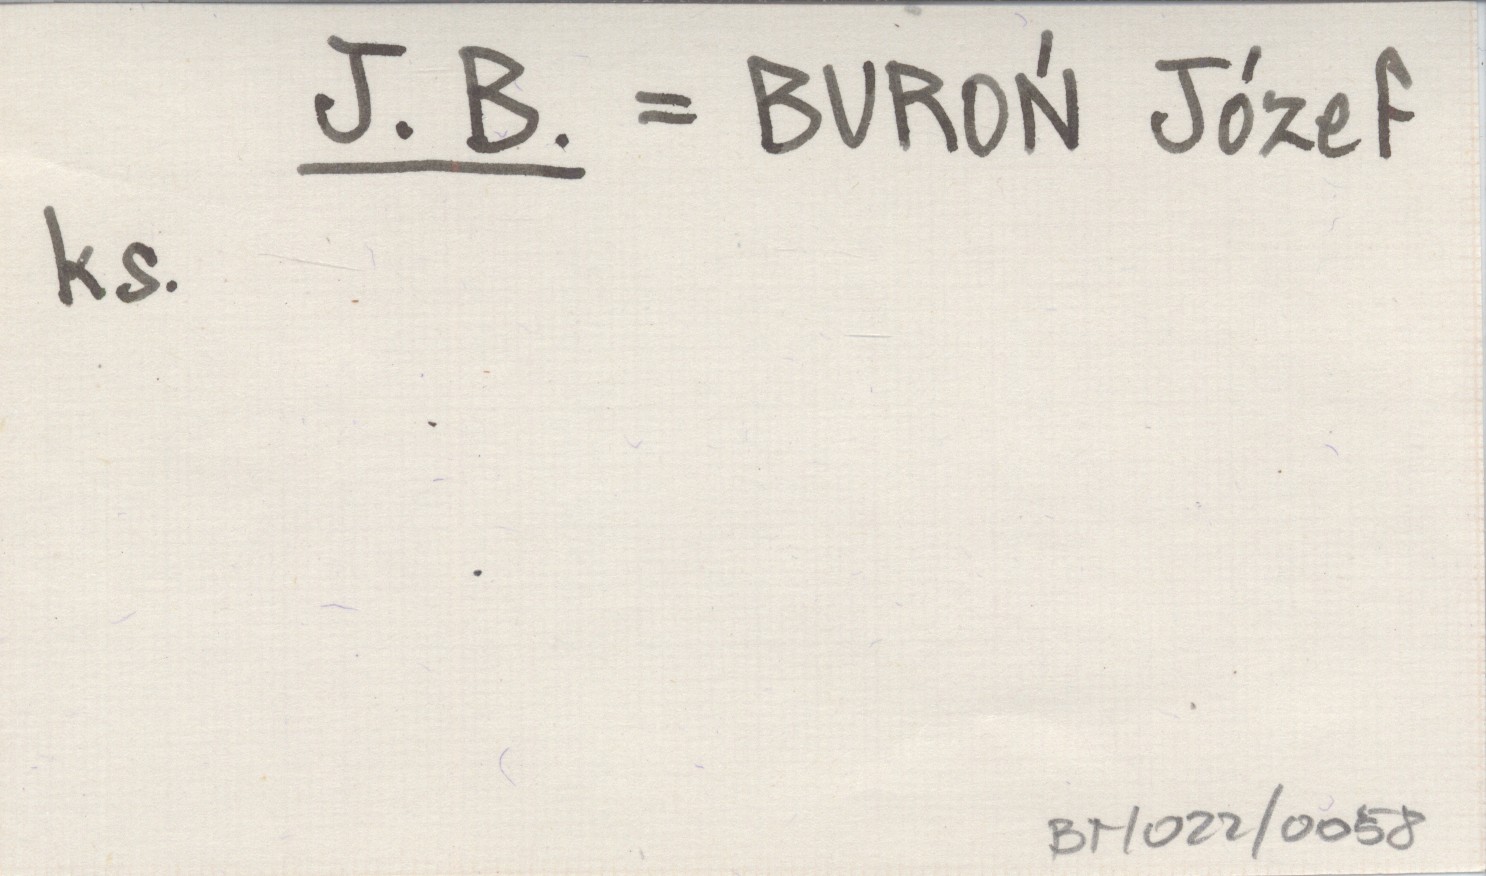 J. B. = BUROŃ Józef
ks.
BT/022/0058